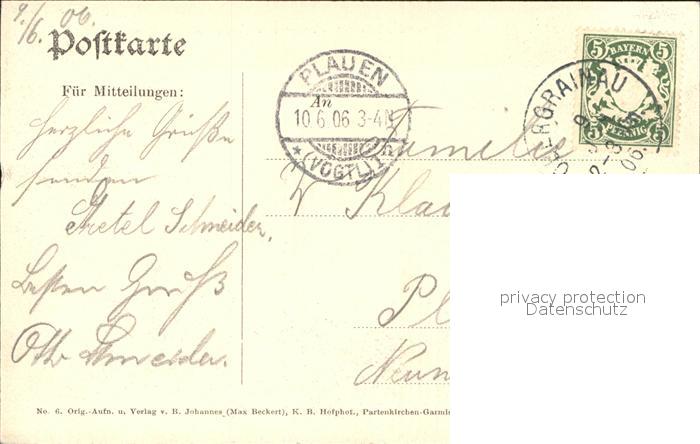 9./6. 06.
Postkarte
Für Mitteilungen:
Herzliche Grüße
senden
Gretel Schneider.
Besten Gruß
Otto Schneider.
PLAUEN
An
10.6.06 3-4N
(VOGTL.)
5 BAYERN 5
5 PFENNIG 5
OBERGRAINAU
Familie
W
Pl
privacy protection
Datenschutz
No. 6. Orig.-Aufn. u. Verlag v. B. Johannes (Max Beckert), K. B. Hofphot., Partenkirchen-Garmis